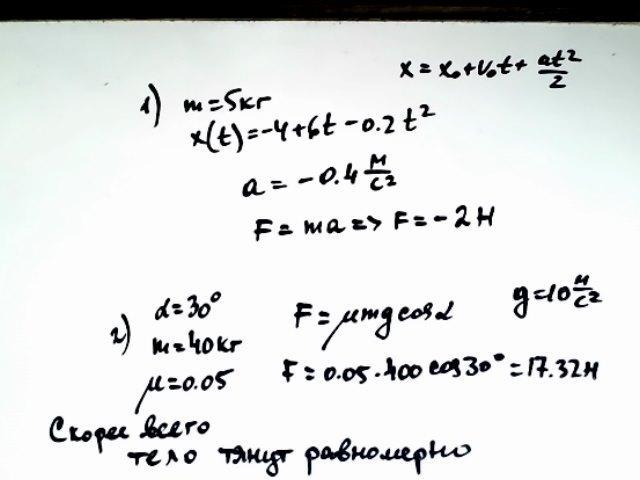 x = x₀ + v₀t + at²/2
1) m = 5кг
x(t) = -4 + 6t - 0.2t²
a = -0.4 м/с²
F = ma => F = -2 Н
2) α = 30°
m = 40кг
μ = 0.05
F = μmgcosα
g = 10 м/с²
F = 0.05 · 400 cos30° = 17.32Н
Скорее всего
тело тянут равномерно